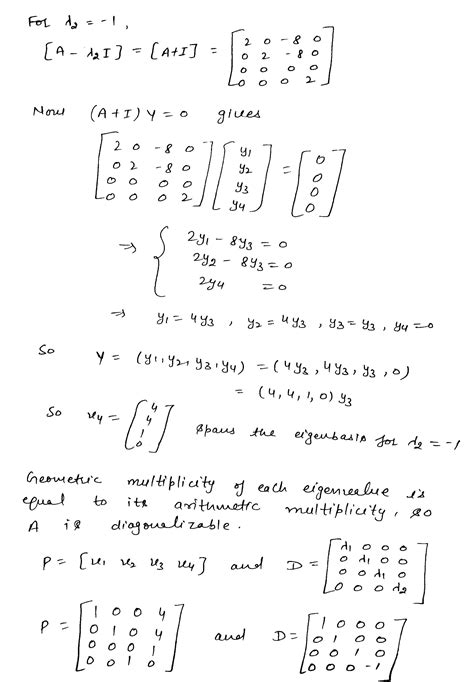 For λ₂ = -1,
[A - λ₂I] = [A+I] = [2 0 -8 0
0 2 -8 0
0 0 0 0
0 0 0 2]
Now (A+I) Y = 0 gives
[2 0 -8 0
0 2 -8 0
0 0 0 0
0 0 0 2] [y₁
y₂
y₃
y₄] = [0
0
0
0]
⇒ { 2y₁ - 8y₃ = 0
2y₂ - 8y₃ = 0
2y₄ = 0
⇒ y₁ = 4y₃ , y₂ = 4y₃ , y₃ = y₃ , y₄ = 0
So Y = (y₁, y₂, y₃, y₄) = (4y₃, 4y₃, y₃, 0)
= (4, 4, 1, 0) y₃
So u₄ = [4
4
1
0] spans the eigenbasis for λ₂ = -1
Geometric multiplicity of each eigenvalue is
equal to its arithmetic multiplicity, so
A is diagonalizable.
P = [u₁ u₂ u₃ u₄] and D = [λ₁ 0 0 0
0 λ₁ 0 0
0 0 λ₁ 0
0 0 0 λ₂]
P = [1 0 0 4
0 1 0 4
0 0 0 1
0 0 1 0] and D = [1 0 0 0
0 1 0 0
0 0 1 0
0 0 0 -1]